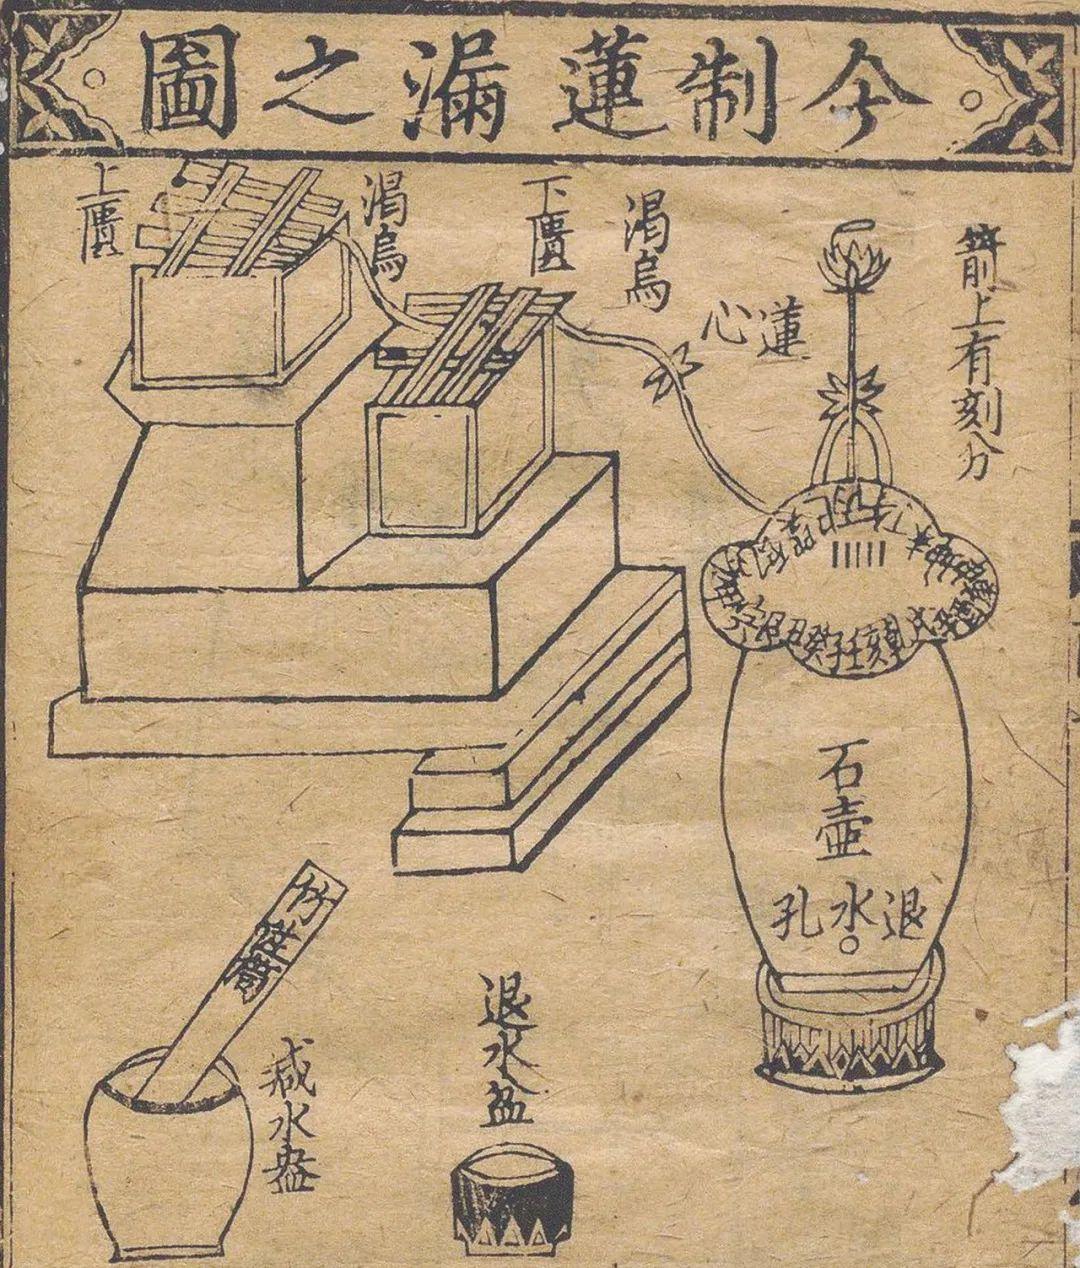 今制蓮漏之圖
箭上有刻分
蓮心
渴烏
下匱
渴烏
上匱
艮丑癸子壬亥乾戌
石壺
退水孔
退水盆
減水盎
竹注筒